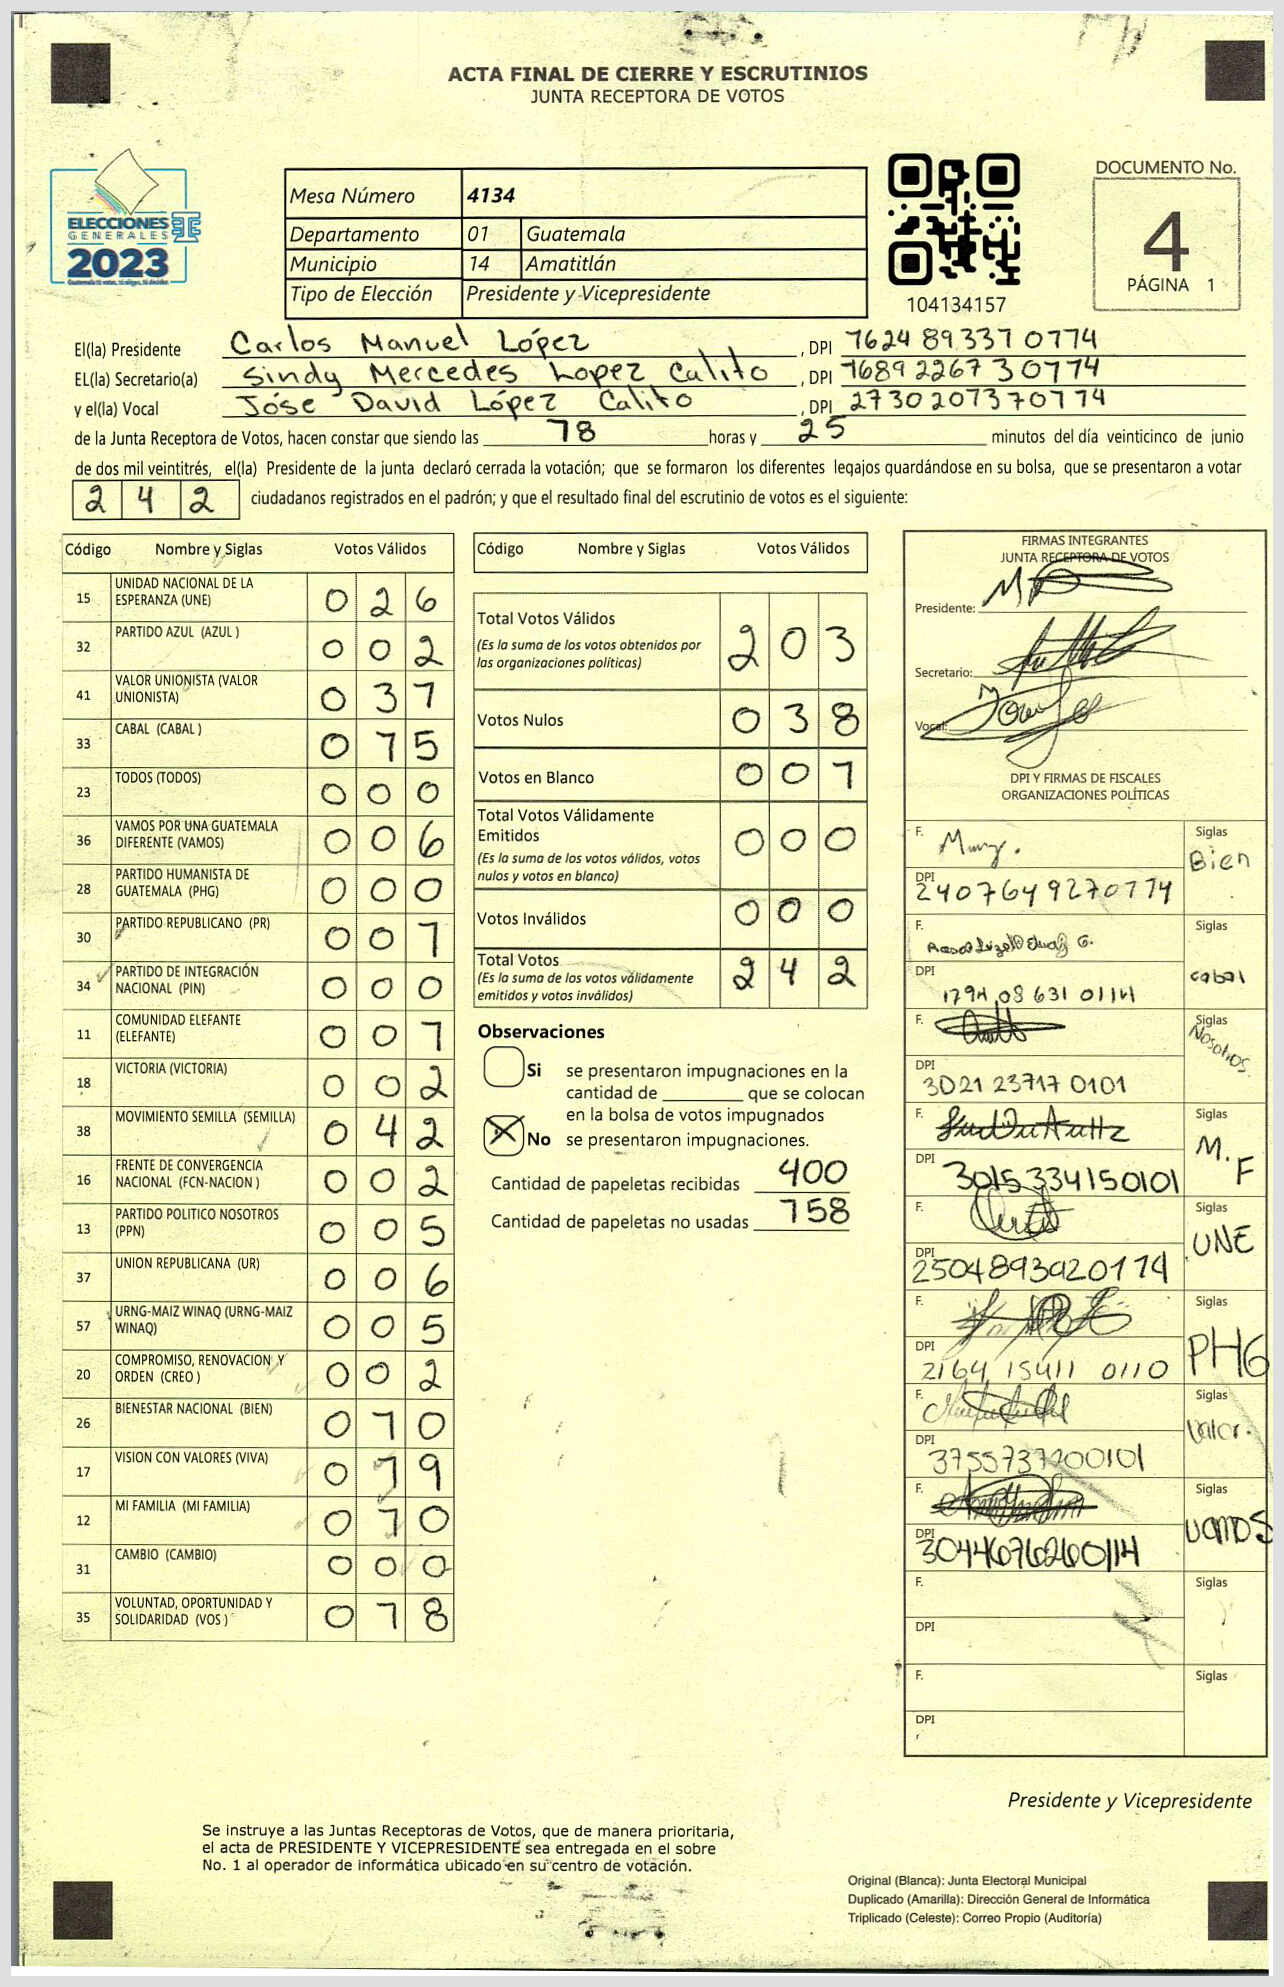 ACTA FINAL DE CIERRE Y ESCRUTINIOS
JUNTA RECEPTORA DE VOTOS
ELECCIONES
GENERALES
2023
Mesa Número 4134
Departamento 01 Guatemala
Municipio 14 Amatitlán
Tipo de Elección Presidente y Vicepresidente
104134157
DOCUMENTO No.
4
PÁGINA 1
El(la) Presidente Carlos Manuel López , DPI 1624 89331 0114
EL(la) Secretario(a) Sindy Mercedes Lopez Calito , DPI 1689 2267 3 0114
y el(la) Vocal Jóse David López Calito , DPI 2130201310114
de la Junta Receptora de Votos, hacen constar que siendo las 18 horas y 25 minutos del día veinticinco de junio
de dos mil veintitrés, el(la) Presidente de la junta declaró cerrada la votación; que se formaron los diferentes legajos guardándose en su bolsa, que se presentaron a votar
2 4 2 ciudadanos registrados en el padrón; y que el resultado final del escrutinio de votos es el siguiente:
Código Nombre y Siglas Votos Válidos
15 UNIDAD NACIONAL DE LA ESPERANZA (UNE) 0 2 6
32 PARTIDO AZUL (AZUL ) 0 0 2
41 VALOR UNIONISTA (VALOR UNIONISTA) 0 3 1
33 CABAL (CABAL ) 0 1 5
23 TODOS (TODOS) 0 0 0
36 VAMOS POR UNA GUATEMALA DIFERENTE (VAMOS) 0 0 6
28 PARTIDO HUMANISTA DE GUATEMALA (PHG) 0 0 0
30 PARTIDO REPUBLICANO (PR) 0 0 1
34 PARTIDO DE INTEGRACIÓN NACIONAL (PIN) 0 0 0
11 COMUNIDAD ELEFANTE (ELEFANTE) 0 0 1
18 VICTORIA (VICTORIA) 0 0 2
38 MOVIMIENTO SEMILLA (SEMILLA) 0 4 2
16 FRENTE DE CONVERGENCIA NACIONAL (FCN-NACION ) 0 0 2
13 PARTIDO POLITICO NOSOTROS (PPN) 0 0 5
37 UNION REPUBLICANA (UR) 0 0 6
57 URNG-MAIZ WINAQ (URNG-MAIZ WINAQ) 0 0 5
20 COMPROMISO, RENOVACION Y ORDEN (CREO ) 0 0 2
26 BIENESTAR NACIONAL (BIEN) 0 1 0
17 VISION CON VALORES (VIVA) 0 1 9
12 MI FAMILIA (MI FAMILIA) 0 1 0
31 CAMBIO (CAMBIO) 0 0 0
35 VOLUNTAD, OPORTUNIDAD Y SOLIDARIDAD (VOS ) 0 1 8
Código Nombre y Siglas Votos Válidos
Total Votos Válidos 2 0 3
(Es la suma de los votos obtenidos por
las organizaciones políticas)
Votos Nulos 0 3 8
Votos en Blanco 0 0 1
Total Votos Válidamente
Emitidos 0 0 0
(Es la suma de los votos válidos, votos
nulos y votos en blanco)
Votos Inválidos 0 0 0
Total Votos 2 4 2
(Es la suma de los votos válidamente
emitidos y votos inválidos)
Observaciones
Si se presentaron impugnaciones en la
cantidad de ________ que se colocan
en la bolsa de votos impugnados
X No se presentaron impugnaciones.
Cantidad de papeletas recibidas 400
Cantidad de papeletas no usadas 158
FIRMAS INTEGRANTES
JUNTA RECEPTORA DE VOTOS
Presidente:
Secretario:
Vocal:
DPI Y FIRMAS DE FISCALES
ORGANIZACIONES POLÍTICAS
F. Siglas Bien
DPI
F. Siglas cabal
DPI 1794 08 631 0114
F. Siglas Nosotros.
DPI 3021 23717 0101
F. M. F
DPI 3015 334150101
F. Siglas UNE
DPI
F. Siglas PHG
DPI 2164 15411 0110
F. Valor.
DPI
F. Siglas vamos
DPI 3044676260114
F. Siglas
DPI
F. Siglas
DPI
Presidente y Vicepresidente
Se instruye a las Juntas Receptoras de Votos, que de manera prioritaria,
el acta de PRESIDENTE Y VICEPRESIDENTE sea entregada en el sobre
No. 1 al operador de informática ubicado en su centro de votación.
Original (Blanca): Junta Electoral Municipal
Duplicado (Amarilla): Dirección General de Informática
Triplicado (Celeste): Correo Propio (Auditoría)